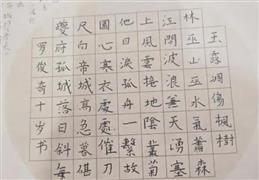 王露凋傷楓樹
林巫山巫水氣蕭森
江間波浪兼天湧塞
上風雲接地陰叢菊
他日淚孤舟一繫故
園心寒衣處處催刀
尺向帝城高急暮
夔府孤城落日斜每
罗俊奇十岁书